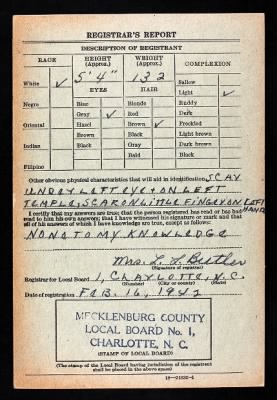 REGISTRAR'S REPORT
DESCRIPTION OF REGISTRANT
RACE HEIGHT (Approx.) WEIGHT (Approx.) COMPLEXION
White ✓ 5'4" 132 Sallow
EYES HAIR Light ✓
Negro Blue Blonde Ruddy
Gray ✓ Red Dark
Oriental Hazel Brown ✓ Freckled
Brown Black Light brown
Indian Black Gray Dark brown
Bald Black
Filipino
Other obvious physical characteristics that will aid in identification SCAR
UNDER LEFT EYE + ON LEFT
TEMPLE, SCAR ON LITTLE FINGER ON LEFT HAND
I certify that my answers are true; that the person registered has read or has had
read to him his own answers; that I have witnessed his signature or mark and that
all of his answers of which I have knowledge are true, except as follows:
NONE TO MY KNOWLEDGE
Mrs. L. L. Butler
(Signature of registrar)
Registrar for Local Board 1, CHARLOTTE, N.C.
(Number) (City or county) (State)
Date of registration FEB. 16, 1942
MECKLENBURG COUNTY
LOCAL BOARD No. 1,
CHARLOTTE, N. C.
(STAMP OF LOCAL BOARD)
(The stamp of the Local Board having jurisdiction of the registrant
shall be placed in the above space)